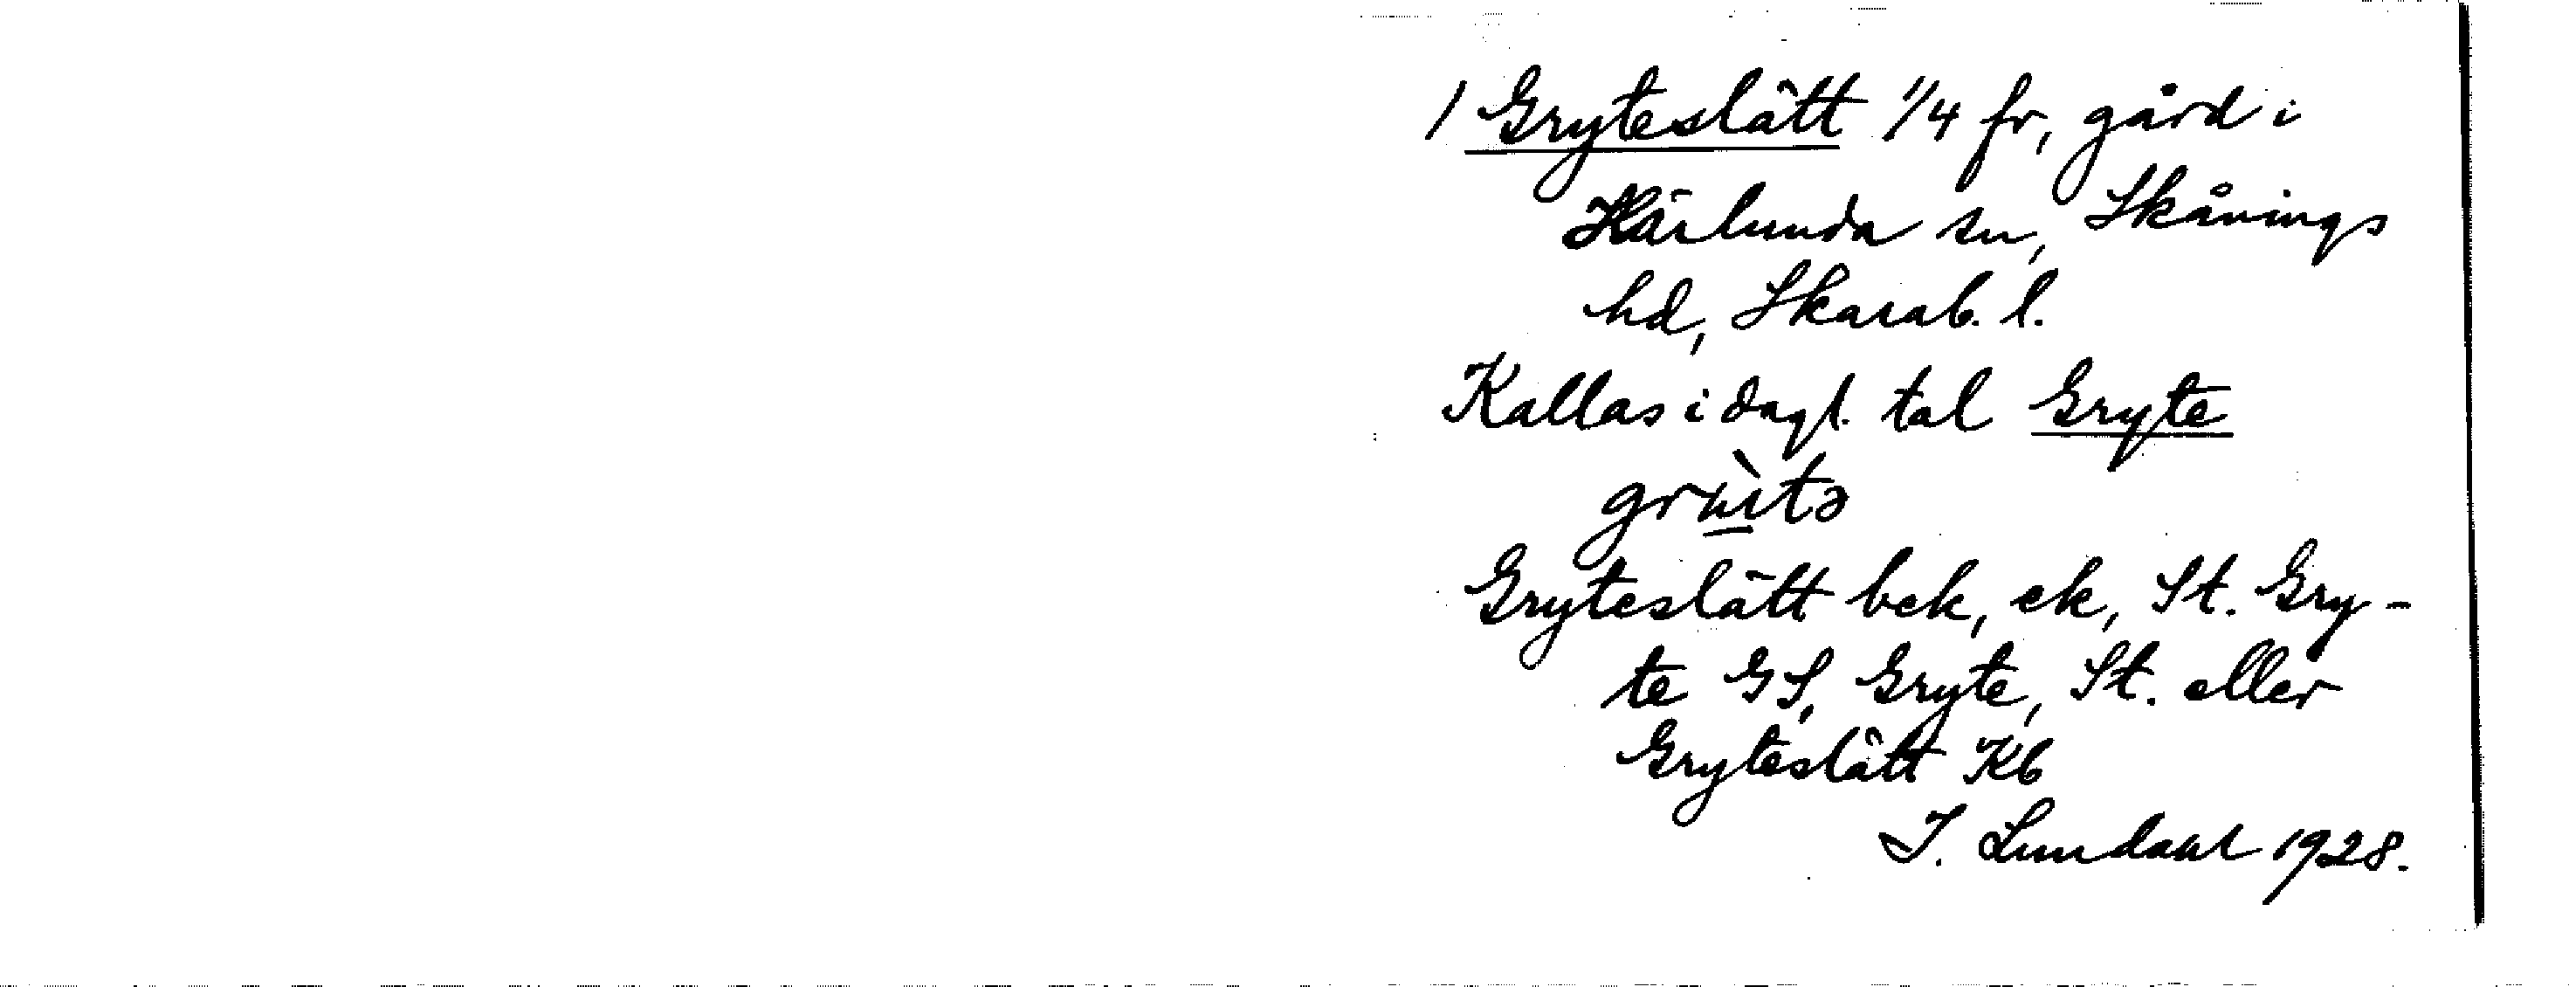 1 Gryteslätt 1/4 fr, gård i
Härlunda sn, Skånings
hd, Skarab. l.
Kallas i dagl. tal Gryte
Gryteslätt bek, ek, St. Gry-
te GS, Gryte, St. eller
Gryteslätt Kb
I. Lundahl 1928.